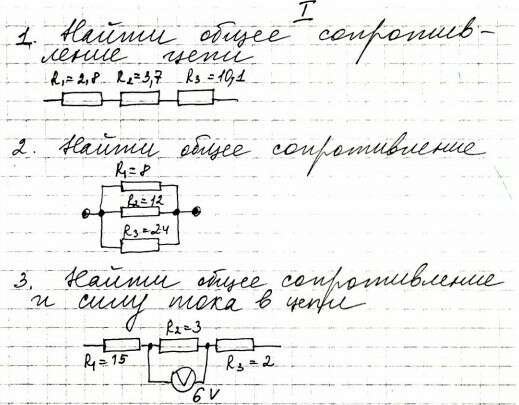 I
1. Найти общее сопротив-
ление цепи
R₁=2,8 R₂=3,7 R₃=10,1
2. Найти общее сопротивление
R₁=8
R₂=12
R₃=24
3. Найти общее сопротивление
и силу тока в цепи
R₂=3
R₁=15
R₃=2
V
6V